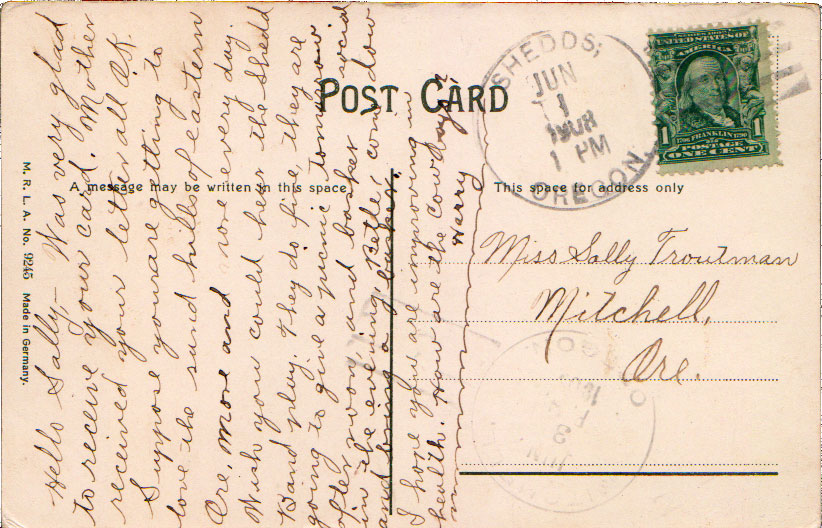 POST CARD
A message may be written in this space
This space for address only
M. R. L. A. No. 9245 Made in Germany.
SHEDDS,
JUN
1
1908
1 PM
OREGON
POSTAGE
ONE CENT
FRANKLIN
AMERICA
1
1
Miss Sally Troutman
Mitchell,
Ore.
Hello Sally,- Was very glad
to receive your card. Mother
received your letter all O.K.
Suppose you are getting to
love the sand hills of eastern
Ore. more and more every day.
Wish you could hear the Shedd
Band play. They do fine, they are
going to give a picnic tomorrow
after noon and basket social
in the evening, Better come down
and bring a basket.
I hope you are improving in
health. How are the Cow boys?
Harry